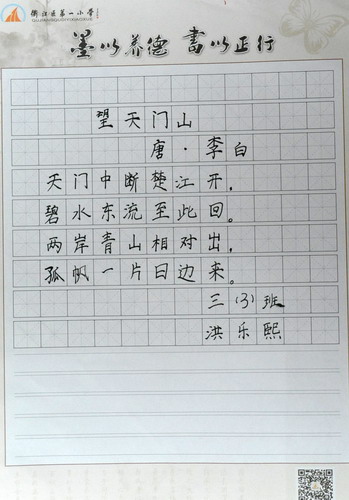 衢江区第一小学
墨以养德 书以正行
望天门山
唐·李白
天门中断楚江开,
碧水东流至此回。
两岸青山相对出,
孤帆一片日边来。
三(3)班
洪乐熙